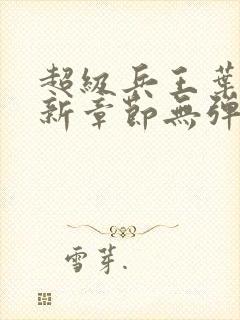 超級兵王葉
新章節無彈
雪芽.